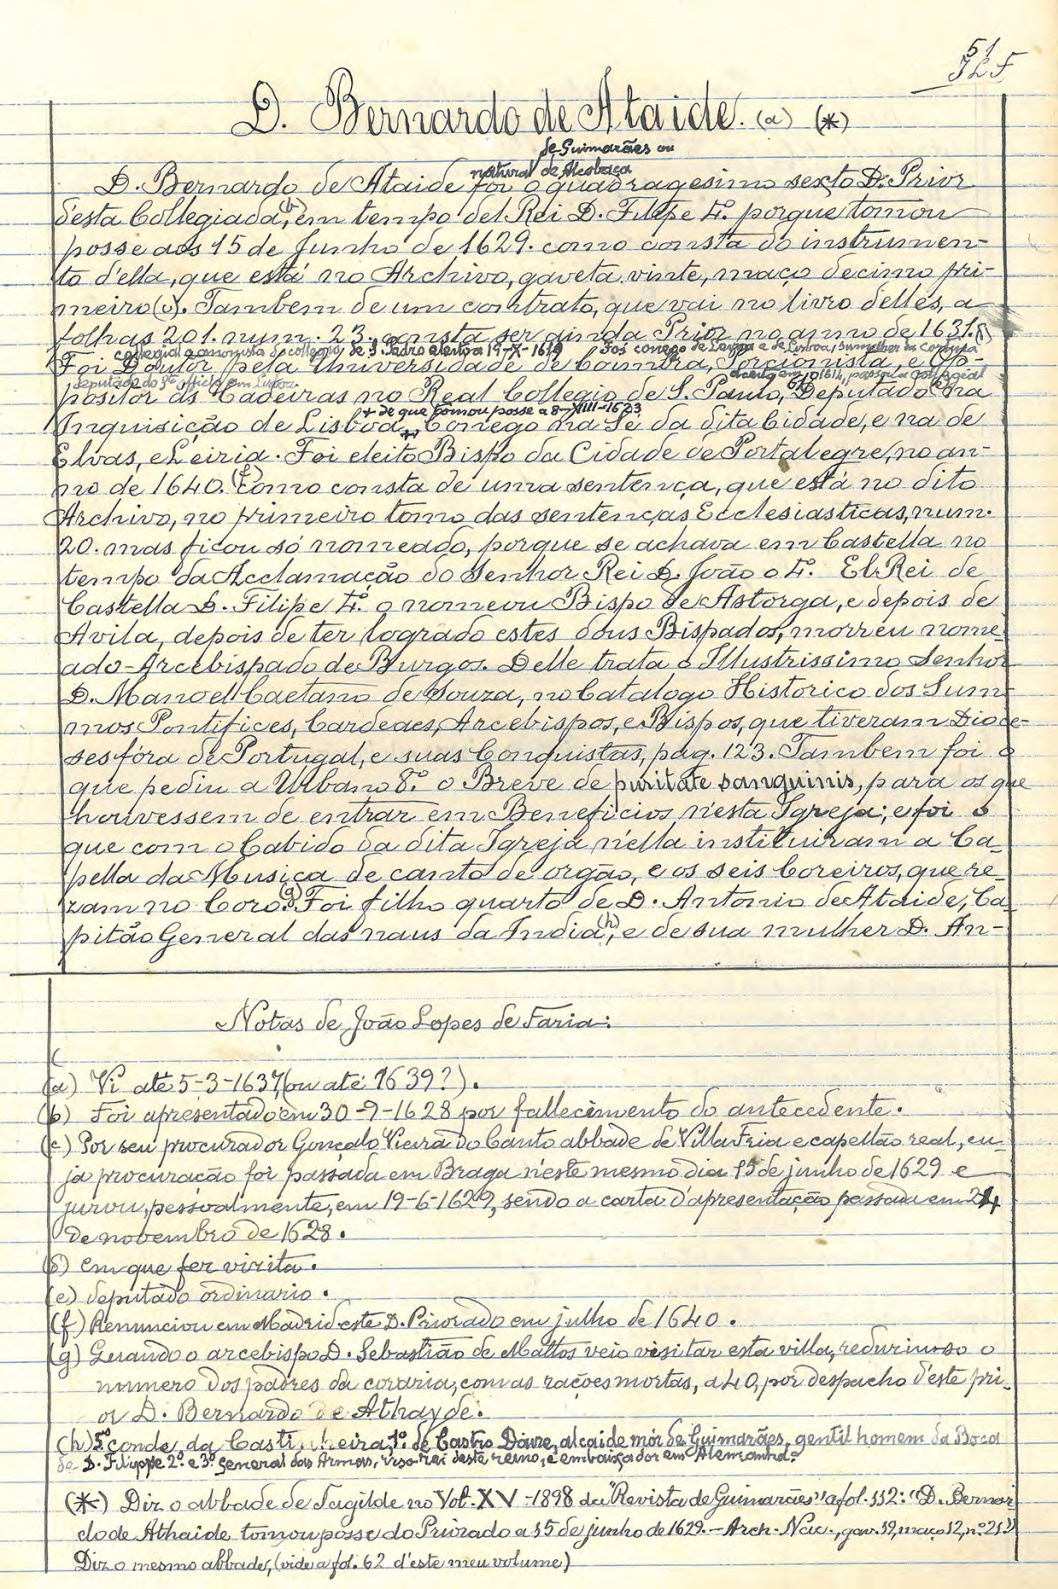 51
JLF
D. Bernardo de Ataide. (a) (*)
de Guimarães ou
natural de Alcobaça
D. Bernardo de Ataide foi o quadragesimo sexto D. Prior
d'esta Collegiada,(b) em tempo del Rei D. Filipe 4.º porque tomou
posse aos 15 de Junho de 1629. como consta do instrumen-
to d'ella, que está no Archivo, gaveta vinte, maço decimo pri-
meiro (c). Tambem de um contrato, que vai no livro delles, a
folhas 201. num. 23. consta ser ainda Prior no anno de 1631.(d)
collegial e porcionista do collegio de S. Pedro eleito a 19-X-1619 Foi conego de Leiria e de Lisboa, sumilher da Cortina
Foi Doutor pela Universidade de Coimbra, Porcionista, e Op-
deputado do Sto officio em Lisboa. aceite em 1614, passou a collegial
positor ás Cadeiras no Real Collegio de S. Paulo, Deputado(e) na
+ de que tomou posse a 8-XIII-1623
Inquisição de Lisboa, Conego na Sé da dita Cidade, e na de
Elvas, e Leiria. Foi eleito Bispo da Cidade de Portalegre, no an-
no de 1640.(f) Como consta de uma sentença, que está no dito
Archivo, no primeiro tomo das sentenças Ecclesiasticas, num.
20. mas ficou só nomeado, porque se achava em Castella no
tempo da Acclamação do Senhor Rei D. João o 4.º El Rei de
Castella D. Filipe 4.º o nomeou Bispo de Astorga, e depois de
Avila, depois de ter logrado estes dous Bispados, morreu nome-
ado Arcebispado de Burgos. Delle trata o Illustrissimo Senhor
D. Manoel Caetano de Souza, no Catalogo Historico dos Sum-
mos Pontifices, Cardeaes, Arcebispos, e Bispos, que tiveram Dioce-
ses fóra de Portugal, e suas Conquistas, pag. 123. Tambem foi o
que pediu a Urbano 8.º o Breve de puritate sanguinis, para os que
houvessem de entrar em Beneficios nesta Igreja; e foi o
que com o Cabido da dita Igreja n'ella instituiram a Ca-
pella da Musica de canto de orgão, e os seis Coreiros, que re-
zam no Coro.(g) Foi filho quarto de D. Antonio de Ataide, Ca-
pitão General das naus da India,(h) e de sua mulher D. An-
Notas de João Lopes de Faria:
(
(a) Vi até 5-3-1637 (ou até 1639?).
(b) Foi apresentado em 30-9-1628 por fallecimento do antecedente.
(c) Por seu procurador Gonçalo Vieira do Canto abbade de Villa Fria e capellão real, cu-
ja procuração foi passada em Braga n'este mesmo dia 15 de junho de 1629 e
jurou, pessoalmente, em 19-6-1629, sendo a carta d'apresentação passada em 24
de novembro de 1628.
(d) em que fez visita.
(e) deputado ordinario.
(f) Renunciou em Madrid este D. Priorado em julho de 1640.
(g) Quando o arcebispo D. Sebastião de Mattos veio visitar esta villa, reduzindo o
numero dos padres da coraria, com as rações mortas, a 40, por despacho d'este pri-
or D. Bernardo de Athayde.
(h) 5º conde da Castanheira, 1º de Castro Daire, alcaide mór de Guimarães, gentil homem da Boca
de D. Filippe 2º e 3º general das Armas, viso-rei deste reino, e embaixador em Alemanha.
(*) Diz o abbade de Tagilde no Vol. XV-1898 da "Revista de Guimarães" a fol. 112: "D. Bernar-
do de Athaide tomou posse do Priorado a 15 de junho de 1629. - Arch. Nac., gav. 19, maço 12, nº 21."
Diz o mesmo abbade, (vide a fol. 62 d'este meu volume)